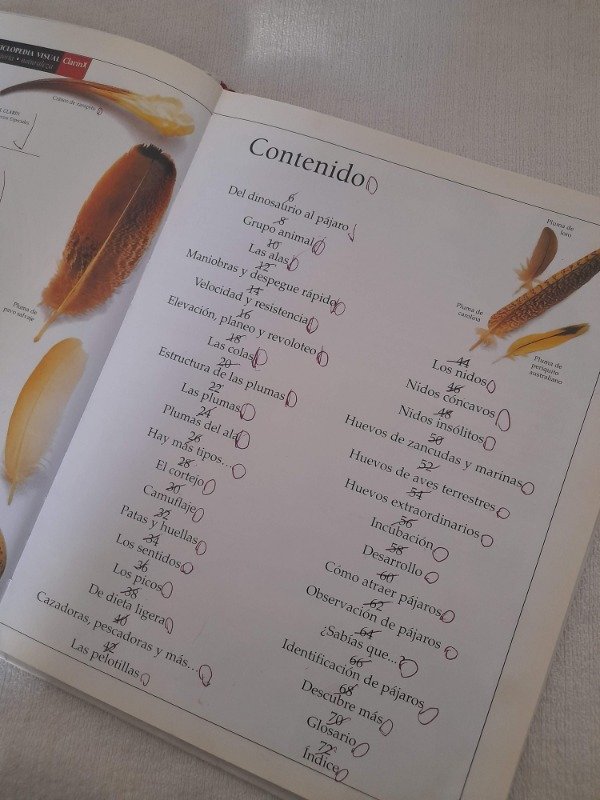 ICLOPEDIA VISUAL
Clarín
naturaleza
CLARÍN
Pluma de
pavo salvaje
Contenido
6
Del dinosaurio al pájaro
8
Grupo animal
10
Las alas
12
Maniobras y despegue rápido
14
Velocidad y resistencia
16
Elevación, planeo y revoloteo
18
Las colas
20
Estructura de las plumas
22
Las plumas
24
Plumas del ala
26
Hay más tipos...
28
El cortejo
30
Camuflaje
32
Patas y huellas
34
Los sentidos
36
Los picos
38
De dieta ligera
40
Cazadoras, pescadoras y más...
42
Las pelotillas
Pluma de
loro
Pluma de
carolina
Pluma de
periquito
australiano
44
Los nidos
46
Nidos cóncavos
48
Nidos insólitos
50
Huevos de zancudas y marinas
52
Huevos de aves terrestres
54
Huevos extraordinarios
56
Incubación
58
Desarrollo
60
Cómo atraer pájaros
62
Observación de pájaros
64
¿Sabías que...?
66
Identificación de pájaros
68
Descubre más
70
Glosario
72
Índice